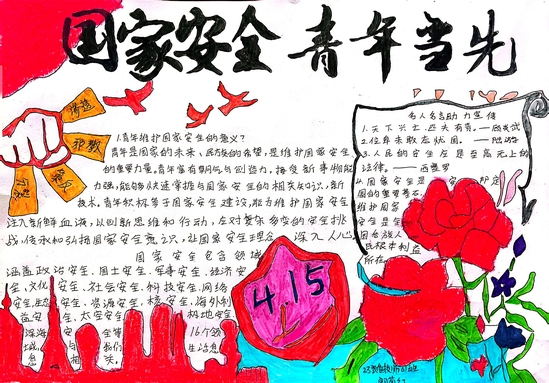 国家安全 青年当先
谣造
邪教
1.青年维护国家安全的意义?
青年是国家的未来、民族的希望,是维护国家安全
的重要力量,青年富有朝气与创造力,接受新事物能
力强,能够快速掌握与国家安全的相关知识,新
技术,青年积极参于国家安全建设,能为维护国家安全
注入新鲜血液,以创新思维和行动,应对复杂多变的安全挑
战,传承和弘扬国家安全意识,让国家安全理念,深入人心
国家安全包含领域
涵盖政治安全、国土安全、军事安全、经济安
全、文化安全、社会安全、科技安全、网络
安全、生态安全、资源安全、核安全、海外利
益安全、太空安全、极地安全
深海安全等16个领
域,与我们生活息
息相关。
4.15
名人名言助力宣传
1.天下兴亡,匹夫有责。——顾炎武
2.位卑未敢忘忧国。——陆游
3.人民的安全应是至高无上的
法律。——西塞罗
国家安全是
安全是
民根本利益
所在